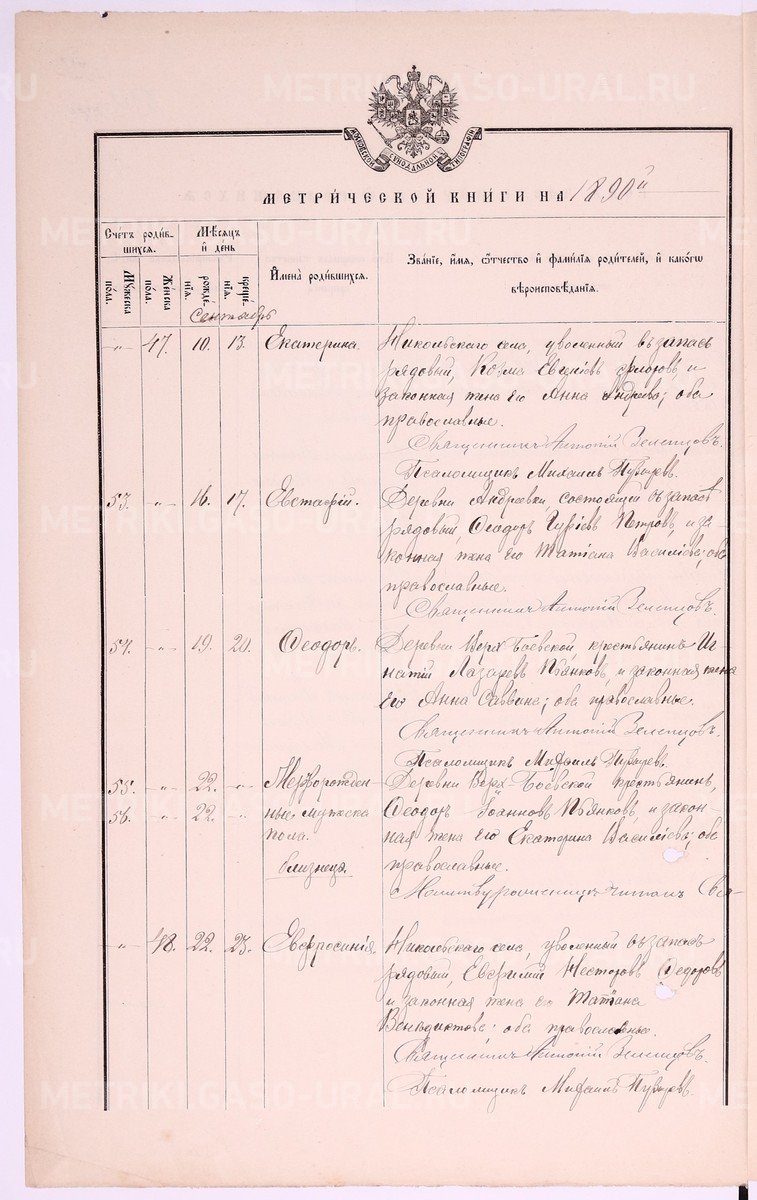 МОСКОВСКОЙ СѴНОДАЛЬНОЙ ТИПОГРАФІИ
МЕТРИ́ЧЕСКОЙ КНИ́ГИ НА 1890 й
Сче́тъ роди́в-
шихся.
Мѣ́сяцъ
и҆ де́нь
И҆мена̀ роди́вшихся.
Зва́нїе, и҆́мя, ѻ҆́тчество и҆ фами́лїя роди́телей, и҆ како́гѡ
вѣроисповѣ́данїя.
Му́жеска по́ла.
Же́нска по́ла.
рожде́нїя.
креще́нїя.
Сентябрь
-"- 47. 10. 13. Екатерина. Никольскаго села, уволенный въ запасъ
рядовый, Козма Евѳиміевъ Ѳедоровъ, и
законная жена его Анна Андреева; оба
православные.
Священникъ Антоній
Псаломщикъ Михаилъ
53. -"- 16. 17. Евстафій. Деревни Андреевки состоящій въ запасѣ
рядовый, Ѳеодоръ Гуріевъ Петровъ, и за-
конная жена его Татіана Василіева; оба
православные.
Священникъ Антоній
54. -"- 19. 20. Ѳеодоръ. Деревни Верхъ-Боевской, крестьянинъ Иг-
натій Лазаревъ Пьянковъ, и законная жена
его Анна Саввина; оба православные.
Священникъ Антоній
Псаломщикъ Михаилъ
55. -"- 22. -"- Мертворожден- Деревни Верхъ-Боевской крестьянинъ,
56. -"- 22. -"- ные мужеска Ѳеодоръ Іоанновъ Пьянковъ, и закон-
пола. ная жена его Екатерина Василіева; оба
близнецы. православные.
Молитву родильницѣ читалъ Свя-
-"- 48. 22. 23. Евфросинія. Никольскаго села, уволенный въ запасъ
рядовый, Евѳимій Несторовъ Ѳедоровъ
и законная жена его Татіана
Венедиктова; оба православные.
Священникъ Антоній
Псаломщикъ Михаилъ
METRIKI.GASO-URAL.RU